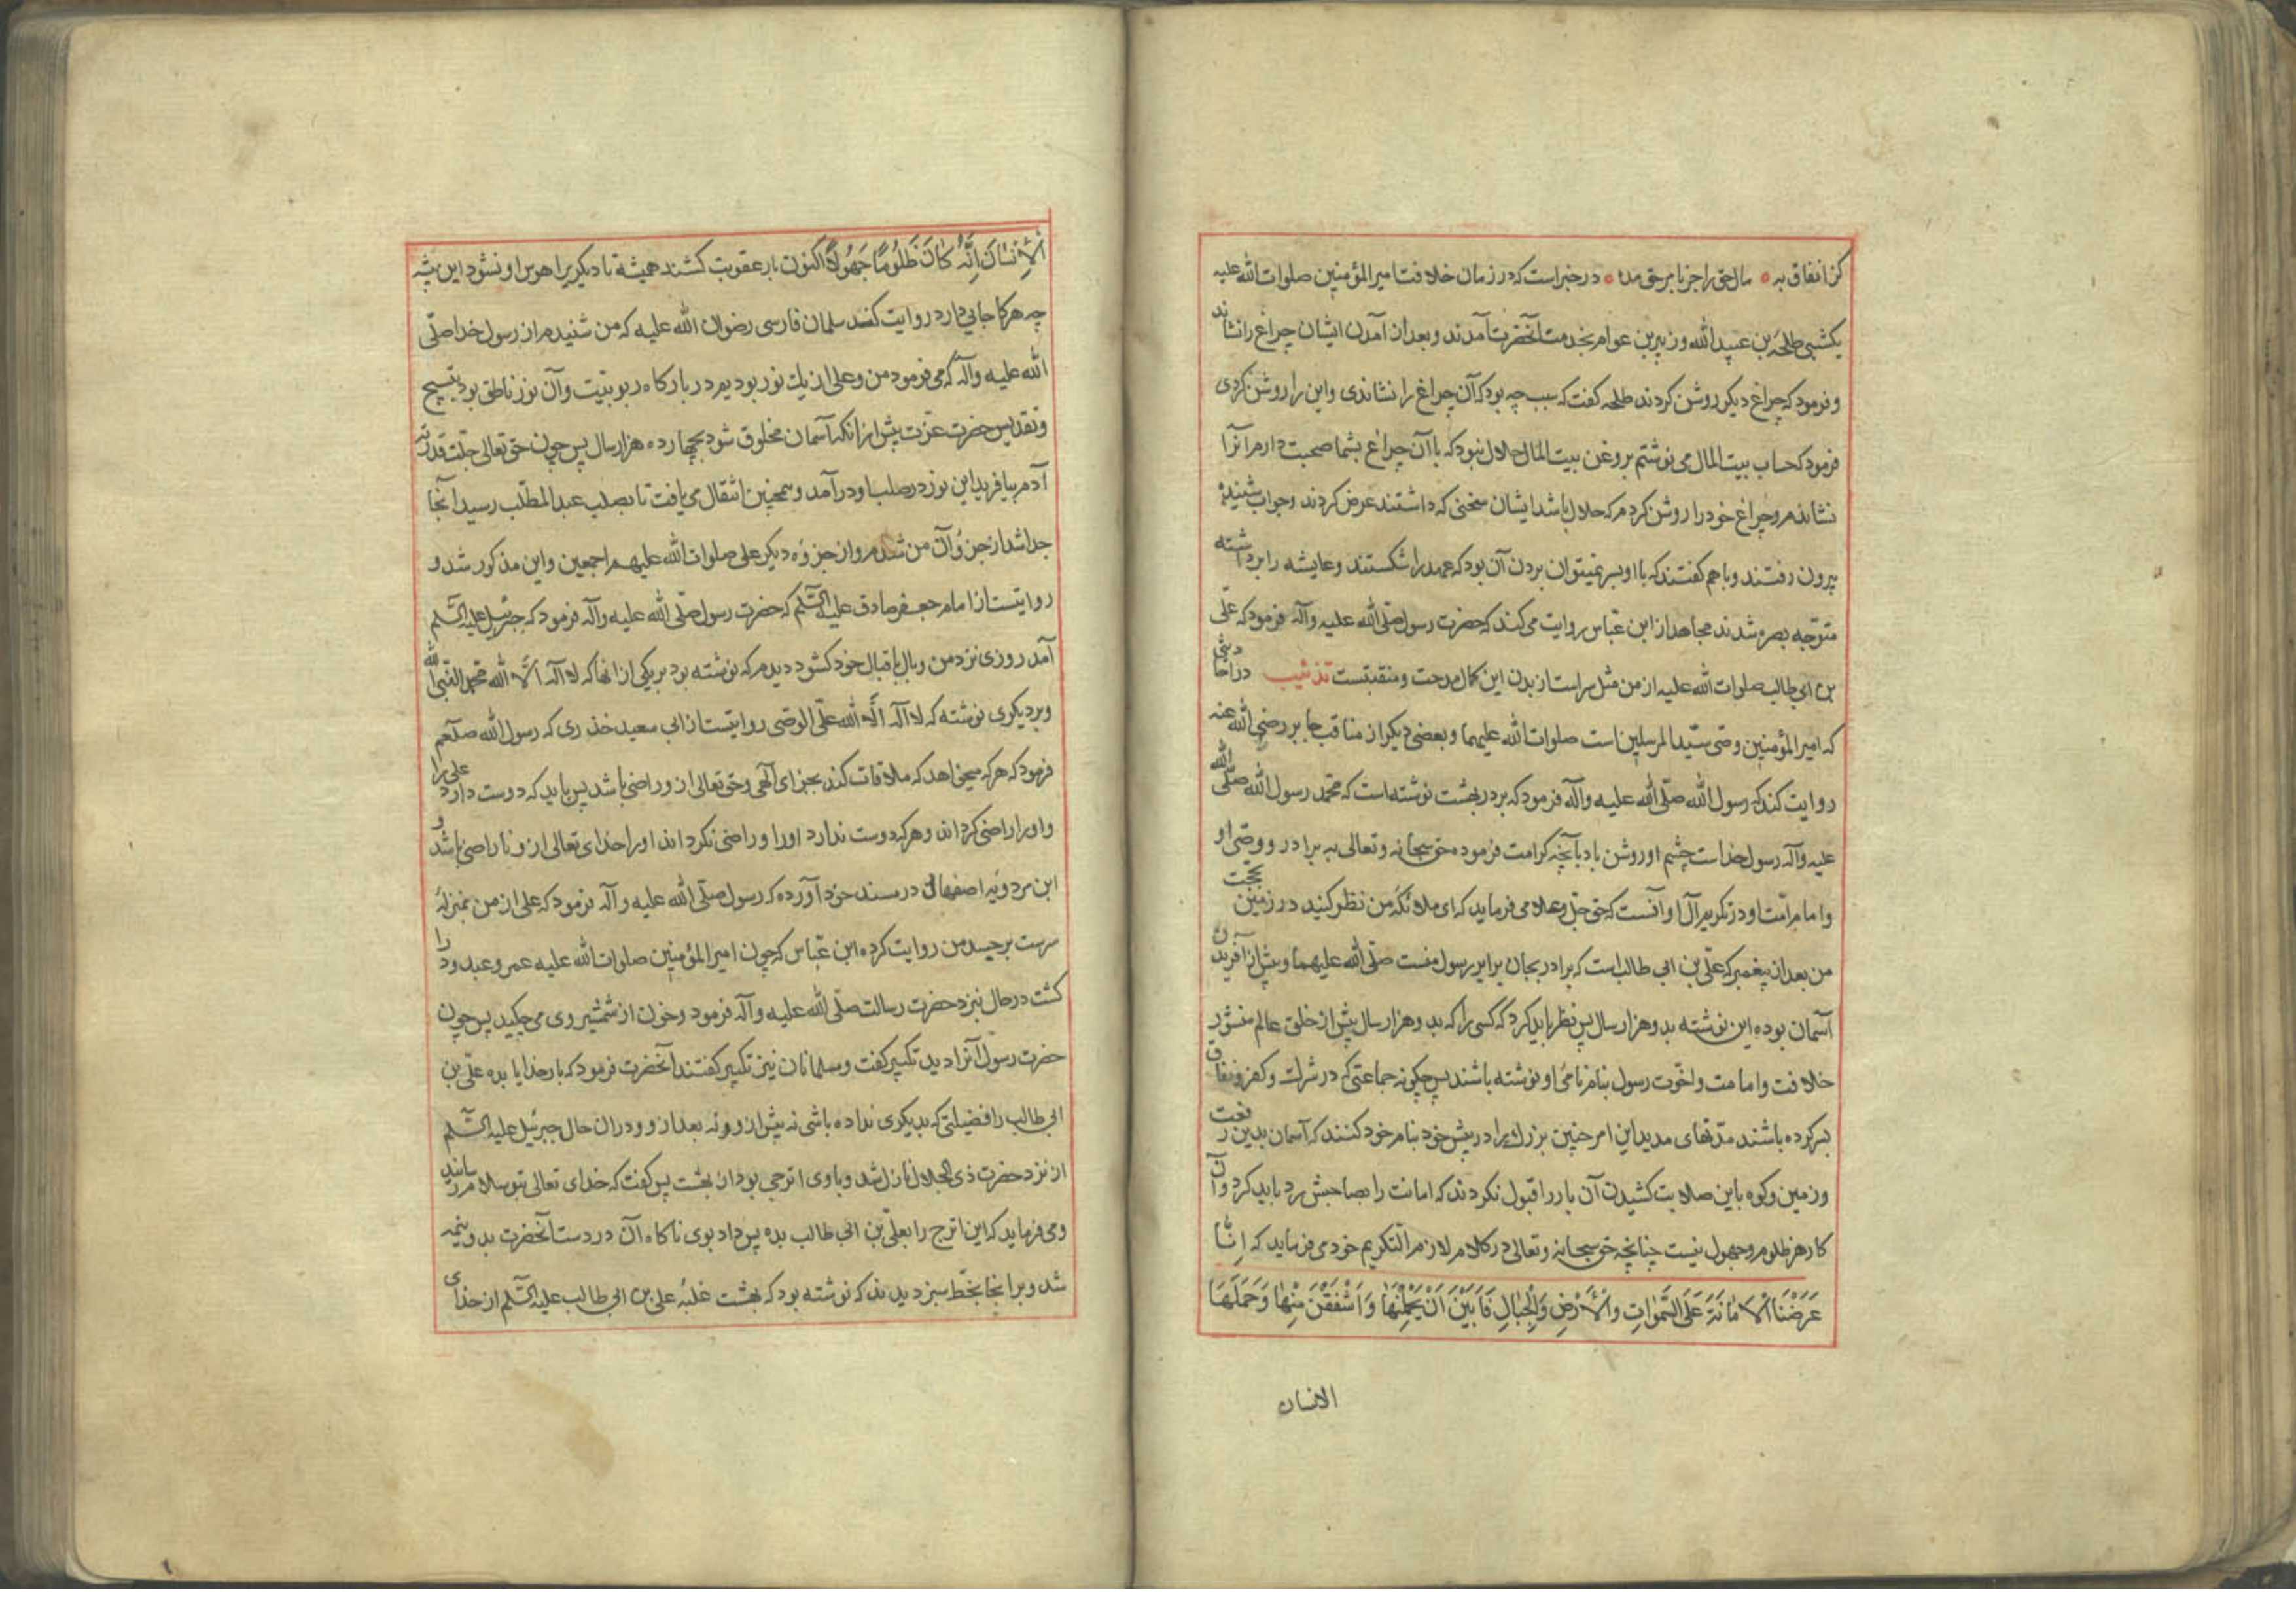 کن انفاق به مال حق را جز بامر حق مده در خبر است که در زمان خلافت امیر المؤمنین صلوات الله علیه
یکشبی طلحة بن عبید الله و زبیر بن عوام بخدمت آنحضرت آمدند و بعد از آمدن ایشان چراغ را نشاند
و فرمود که چراغ دیگر روشن کردند طلحه گفت که سبب چه بود که آن چراغ را نشاندی و این را روشن کردی
فرمود که حساب بیت المال می نوشتم بروغن بیت المال حلال نبود که با آن چراغ بشما صحبت دارم انرا
نشاندم و چراغ خود را روشن کردم که حلال باشد ایشان سخنی که داشتند عرض کردند و جواب شنیده
بیرون رفتند و با هم گفتند که با او بسر نمیتوان بردن آن بود که عهد را شکستند و عایشه را برداشته
متوجه بصره شدند مجاهد از ابن عباس روایت می کند که حضرت رسول صلی الله علیه و آله فرمود که علی
بن ابی طالب صلوات الله علیه از من مثل سر است از بدن این کمال مدحت و منقبتست تذنیب در
که امیر المؤمنین وصی سید المرسلین است صلوات الله علیهما و بعضی دیگر از مناقب جابر رضی الله عنه
روایت کند که رسول الله صلی الله علیه و آله فرمود که بر در بهشت نوشته است که محمد رسول الله صلی الله
علیه و آله رسول خداست چشم او روشن باد بآنچه کرامت فرموده حق سبحانه و تعالی به برادر و وصی او
و امام امت او در تکریم آل او آنست که حق جل و علا می فرماید که ای ملائکه من نظر کنید در زمین بحجت
من بعد از پیغمبر که علی بن ابی طالب است که برادر بجان برابر رسول منست صلی الله علیهما و پیش از آفریدن
آسمان بوده این نوشته بدو هزار سال پس نظر باید کرد که کسی را که بدو هزار سال پیش از خلق عالم منشور
خلافت و امامت و اخوت رسول بنام نامی او نوشته باشند پس چگونه جماعتی که در شرك و کفر و نفاق
بسر کرده باشند مدتهای مدید این امر چنین بزرك را در پیش خود بنام خود کنند که آسمان بدین رفعت
و زمین و کوه باین صلابت کشیدن آن بار را قبول نکردند که امانت را بصاحبش رد باید کرد و آن
کار هر ظلوم و جهول نیست چنانچه حق سبحانه و تعالی در کلام لازم التکریم خود می فرماید که اِنَّا
عَرَضْنَا الْاَمَانَةَ عَلَى السَّمٰوَاتِ وَالْاَرْضِ وَالْجِبَالِ فَاَبَيْنَ اَنْ يَحْمِلْنَهَا وَاَشْفَقْنَ مِنْهَا وَحَمَلَهَا
الانسان
الْاِنْسَانُ اِنَّهُ كَانَ ظَلُومًا جَهُولًا اکنون بار عقوبت کشند همیشه تا دیگریرا هوس او نشود این پیشه
چه هرکا جایی دارد روایت کند سلمان فارسی رضوان الله علیه که من شنیدم از رسول خدا صلی
الله علیه و آله که می فرمود من و علی از یك نور بودیم در بارکاه ربوبیت و آن نور ناطق بود بتسبیح
و تقدیس حضرت عزت پیش از انکه آسمان مخلوق شود بچهارده هزار سال پس چون حق تعالی جلت قدرته
آدم بیافرید این نور در صلب او در آمد و همچنین انتقال می یافت تا بصلب عبد المطلب رسید آنجا
جدا شد از جزؤ آن من شدم و از جزوه دیگر علی صلوات الله علیهم اجمعین و این مذکور شد و
روایتست از امام جعفر صادق علیه السلم که حضرت رسول صلی الله علیه و آله فرمود که جبرئیل علیه السلم
آمد روزی نزد من و بال باقبال خود کشود دیدم که نوشته بود بر یکی از انها که لا اله الا الله محمد النبی الله
و بر دیکری نوشته که لا اله الا الله علی الوصی روایتست از ابی سعید خذری که رسول الله صلعم
فرمود که هر که میخواهد که ملاقات کند بجزای آلهی و حق تعالی از و راضی باشد پس باید که دوست دارد علی را
و او را راضی کرداند و هر که دوست ندارد او را و راضی نکرداند او را خدای تعالی از و ناراضی باشد و
ابن مردویه اصفهانی در مسند خود آورده که رسول صلی الله علیه و آله فرمود که علی از من بمنزلهٔ
سرست بر جسد من روایت کرده ابن عباس که چون امیر المؤمنین صلوات الله علیه عمرو عبدود را
کشت در حال نبزد حضرت رسالت صلی الله علیه و آله فرمود و خون از شمشیر وی می چکید پس چون
حضرت رسول آنرا دید تکبیر گفت و مسلمانان نیز تکبیر گفتند آنحضرت فرمود که بار خدایا بده علی بن
ابی طالب را فضیلتی که بدیکری نداده باشی نه پیش از و و نه بعد از و و در ان حال جبرئیل علیه السلم
از نزد حضرت ذی الجلال نازل شد و با وی اترجی بود از بهشت پس گفت که خدای تعالی بتو سلام رسانید
و می فرماید که این اترج را بعلی بن ابی طالب بده پس داد بوی ناکاه آن در دست آنحضرت بدو نیمه
شد و بر انجا بخط سبز دیدند که نوشته بود که علی بن ابی طالب علیه السلم از خدای